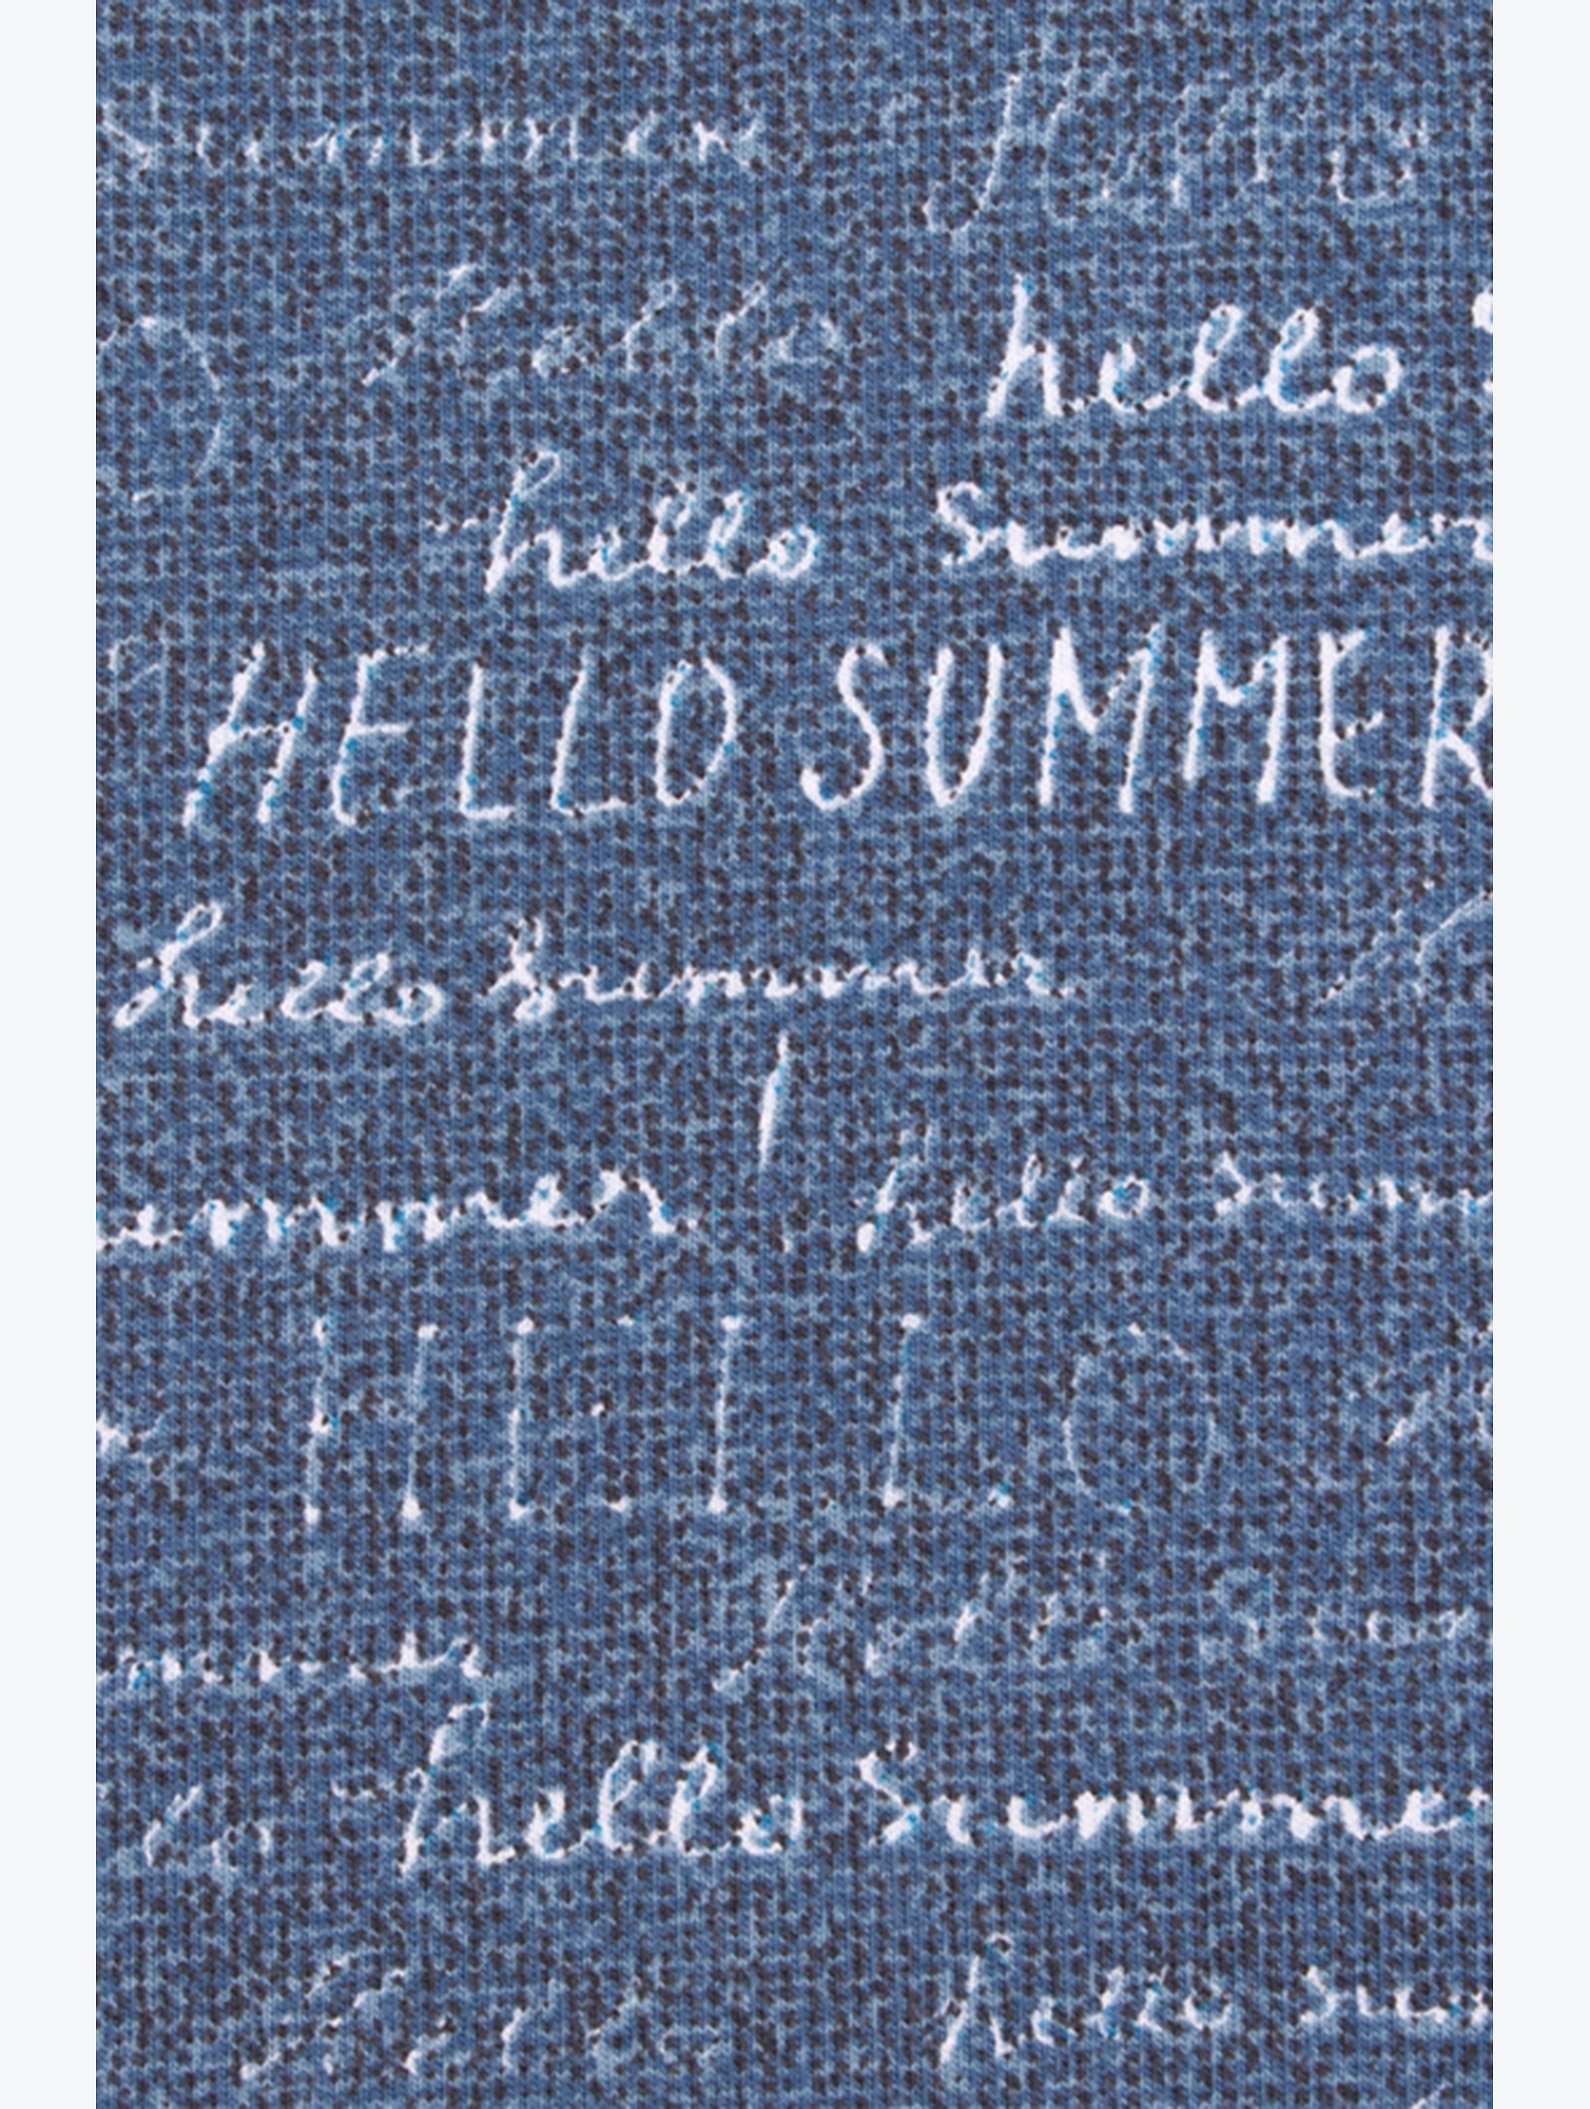 summer Hello
Hello hello
hello summer
HELLO SUMMER
hello summer
ummer hello summ
HELLO
hello
hello summe
hello sum